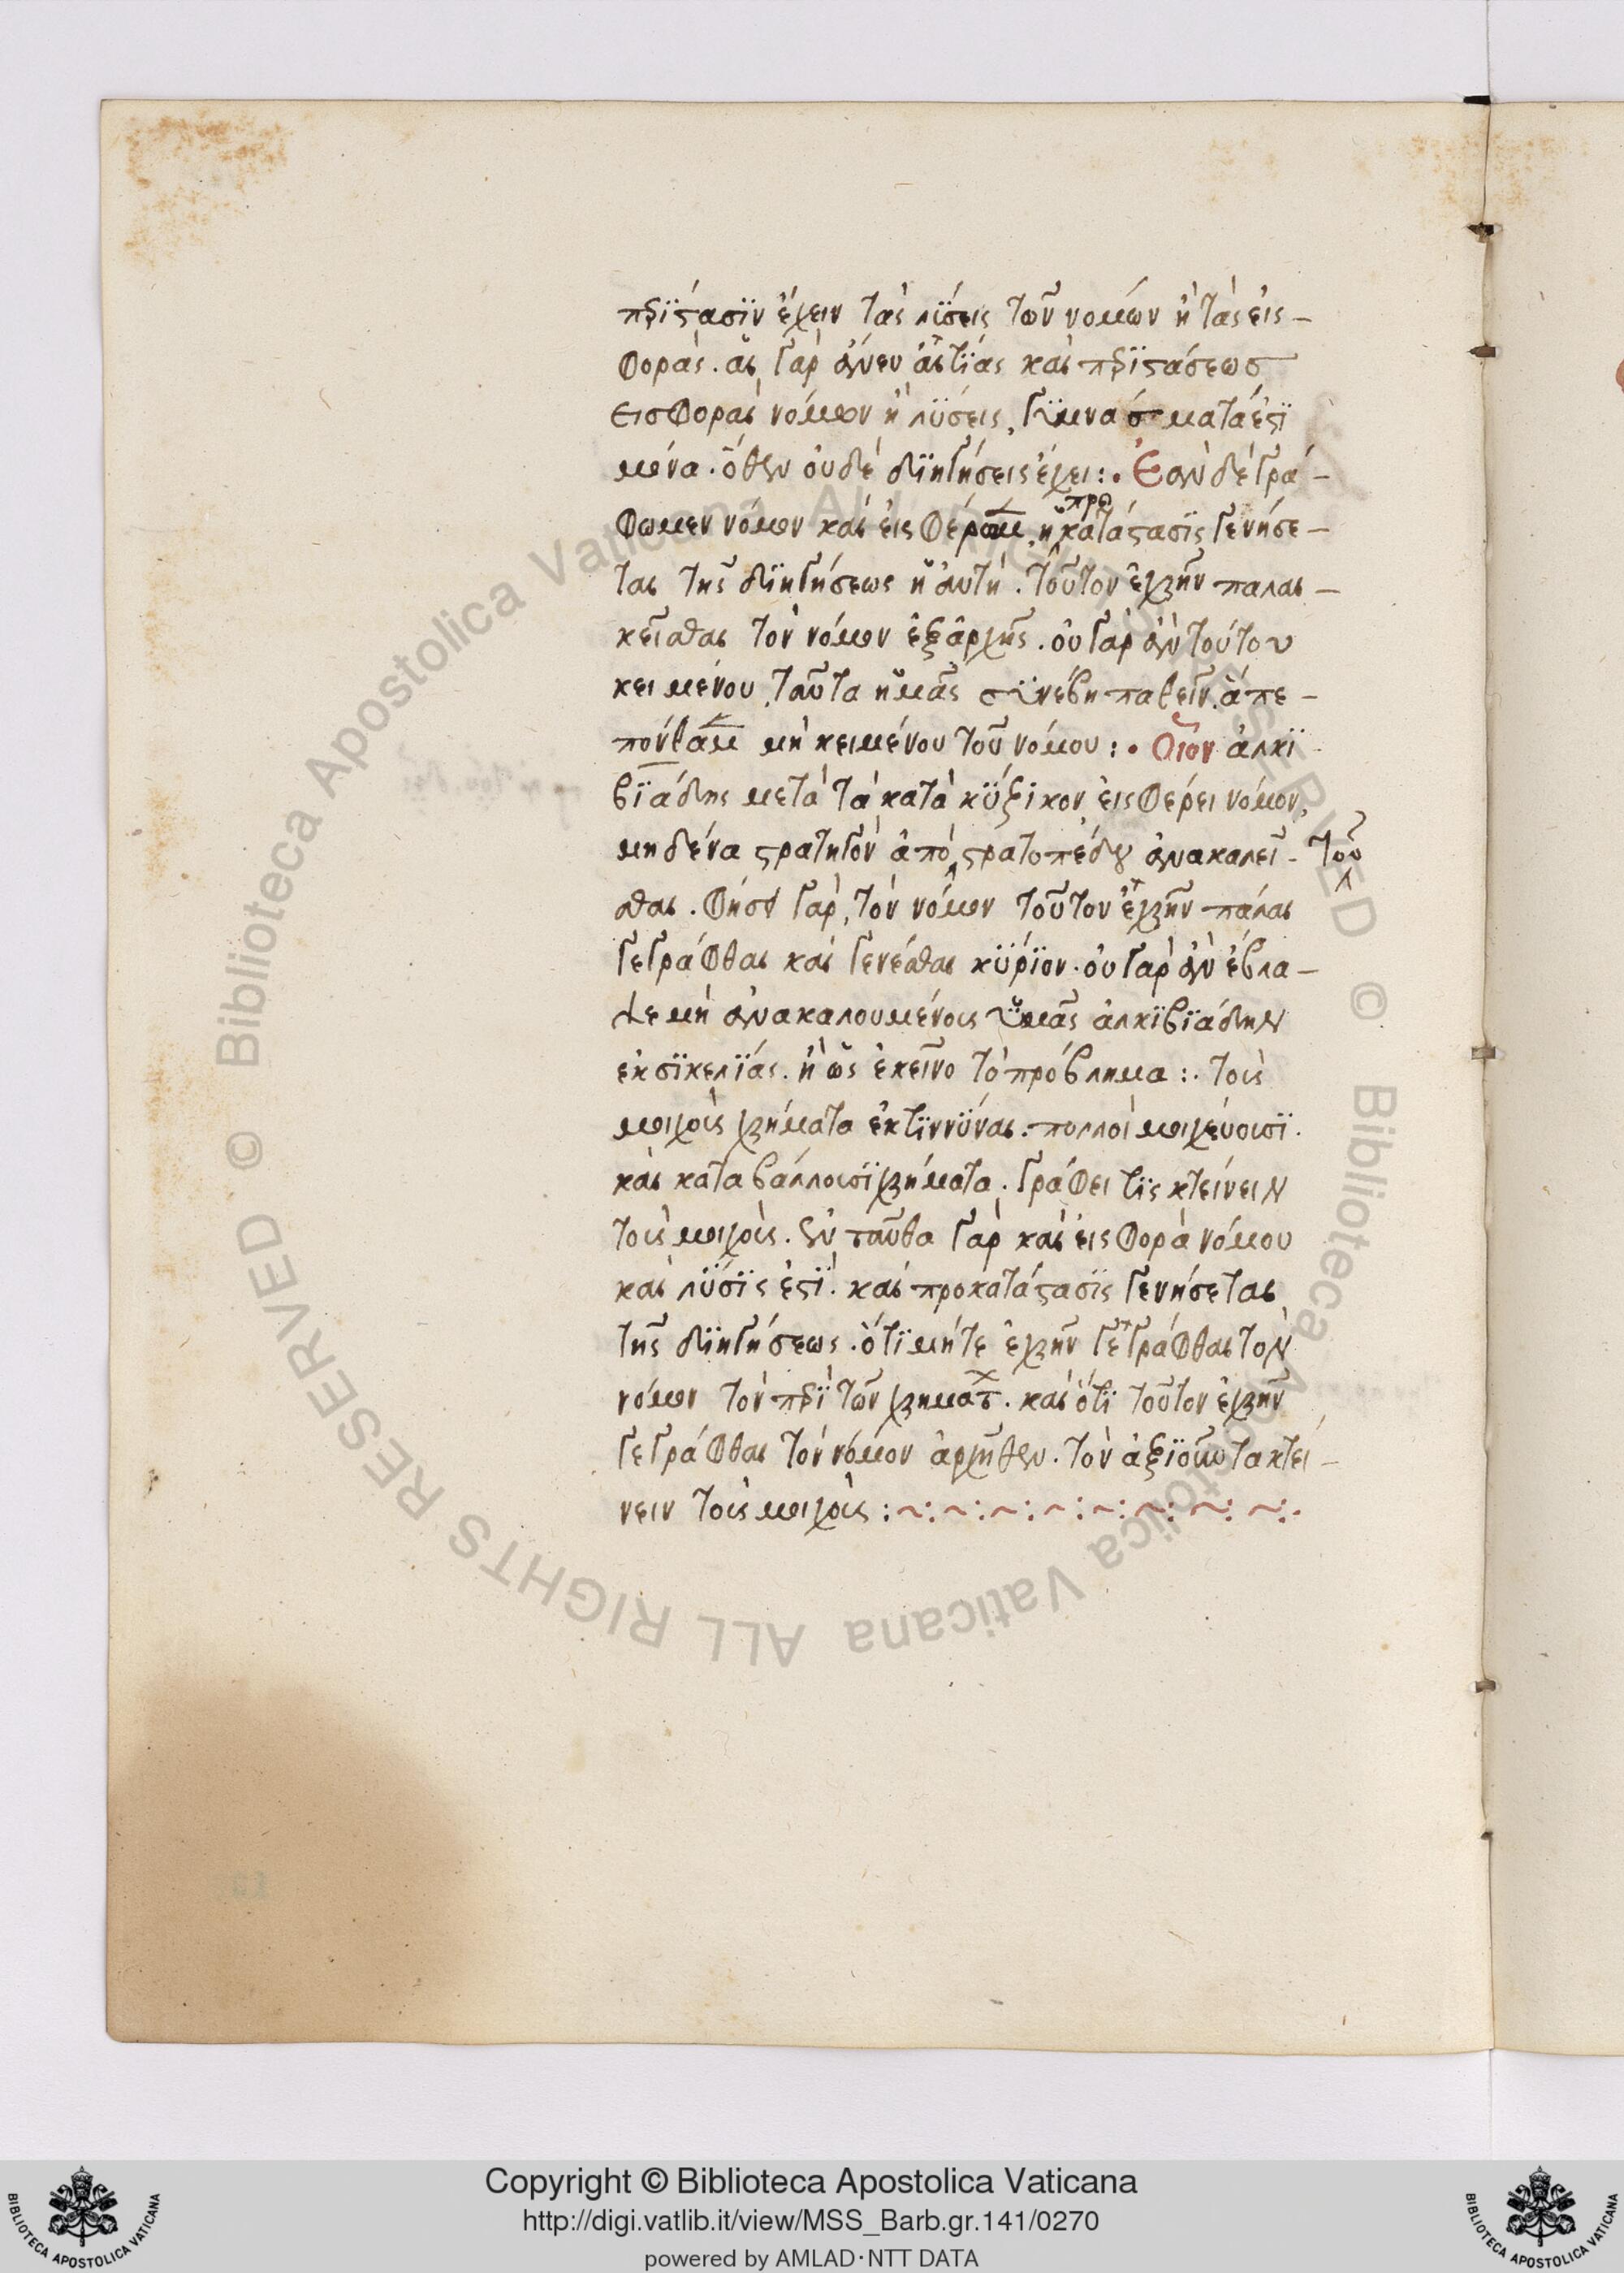 πϼίστασϊν ἔχειν τὰς λϋσεις τῶν νόμων ἢ τὰς εἰς-
φοράς. αἱ γὰρ ἄνευ αἰτΐας καὶ πϼιστάσεως
εἰσφοραὶ νόμων ἢ λύσεις, γϋμνάσματά ἐστϊ
μόνα. ὅθεν οὐδὲ διηγήσεις ἔχει :. Ἐὰν δὲ γρά-
φωμεν νόμον καὶ εἰσφέρωμ, ἡ προκατάστασϊς γενήσε-
ται τῆς διηγήσεως ἡ αὐτή. τοῦτον ἐχρῆν παλαι-
κεῖσθαι τὸν νόμον ἐξἀρχῆς. οὐ γὰρ ἂν τούτου
κειμένου, ταῦτα ἡμᾶς σϋνέβη παθεῖν, ἃ πε-
πόνθαμ μὴ κειμένου τοῦ νόμου :. Οἷον ἀλκϊ
βϊάδης μετὰ τὰ κατὰ κΰζικον, εἰσφέρει νόμον,
μηδένα στρατηγὸν ἀπὸ στρατοπέδου ἀνακαλεῖ- τοῦ
σθαι. φησὶ γὰρ, τὸν νόμον τοῦτον ἐχρῆν πάλαι
γεγράφθαι καὶ γενέσθαι κΰρϊον. οὐ γὰρ ἂν ἔβλα-
ψε μὴ ἀνακαλουμένους ὑμᾶς ἀλκϊβϊάδην
ἐκ σϊκελΐας. ἢ ὡς ἐκεῖνο τὸ πρόβλημα :. τοὺς
μοιχοὺς χρήματα ἐκτϊννΰναι. πολλοὶ μοιχεύουσϊ.
καὶ καταβάλλουσϊ χρήματα. γράφει τϊς κτείνειν
τοὺς μοιχούς. ἐνταῦθα γὰρ καὶ εἰσφορὰ νόμου
καὶ λΰσϊς ἐστΐ. καὶ προκατάστασϊς γενήσεται
τῆς διηγήσεως. ὅτϊ μήτε ἐχρῆν γεγράφθαι τὸν
νόμον τὸν πϼϊ τῶν χρημάτ. καὶ ὅτϊ τοῦτον ἐχρῆν
γεγράφθαι τὸν νόμον ἀρχῆθεν. τὸν ἀξϊοῦντα κτεί-
νειν τοὺς μοιχούς :~:~:~:~:~:~:~:~:.
Copyright © Biblioteca Apostolica Vaticana
http://digi.vatlib.it/view/MSS_Barb.gr.141/0270
powered by AMLAD·NTT DATA
BIBLIOTECA APOSTOLICA VATICANA
BIBLIOTECA APOSTOLICA VATICANA
© Biblioteca Apostolica Vaticana ALL RIGHTS RESERVED © Biblioteca Apostolica Vaticana ALL RIGHTS RESERVED